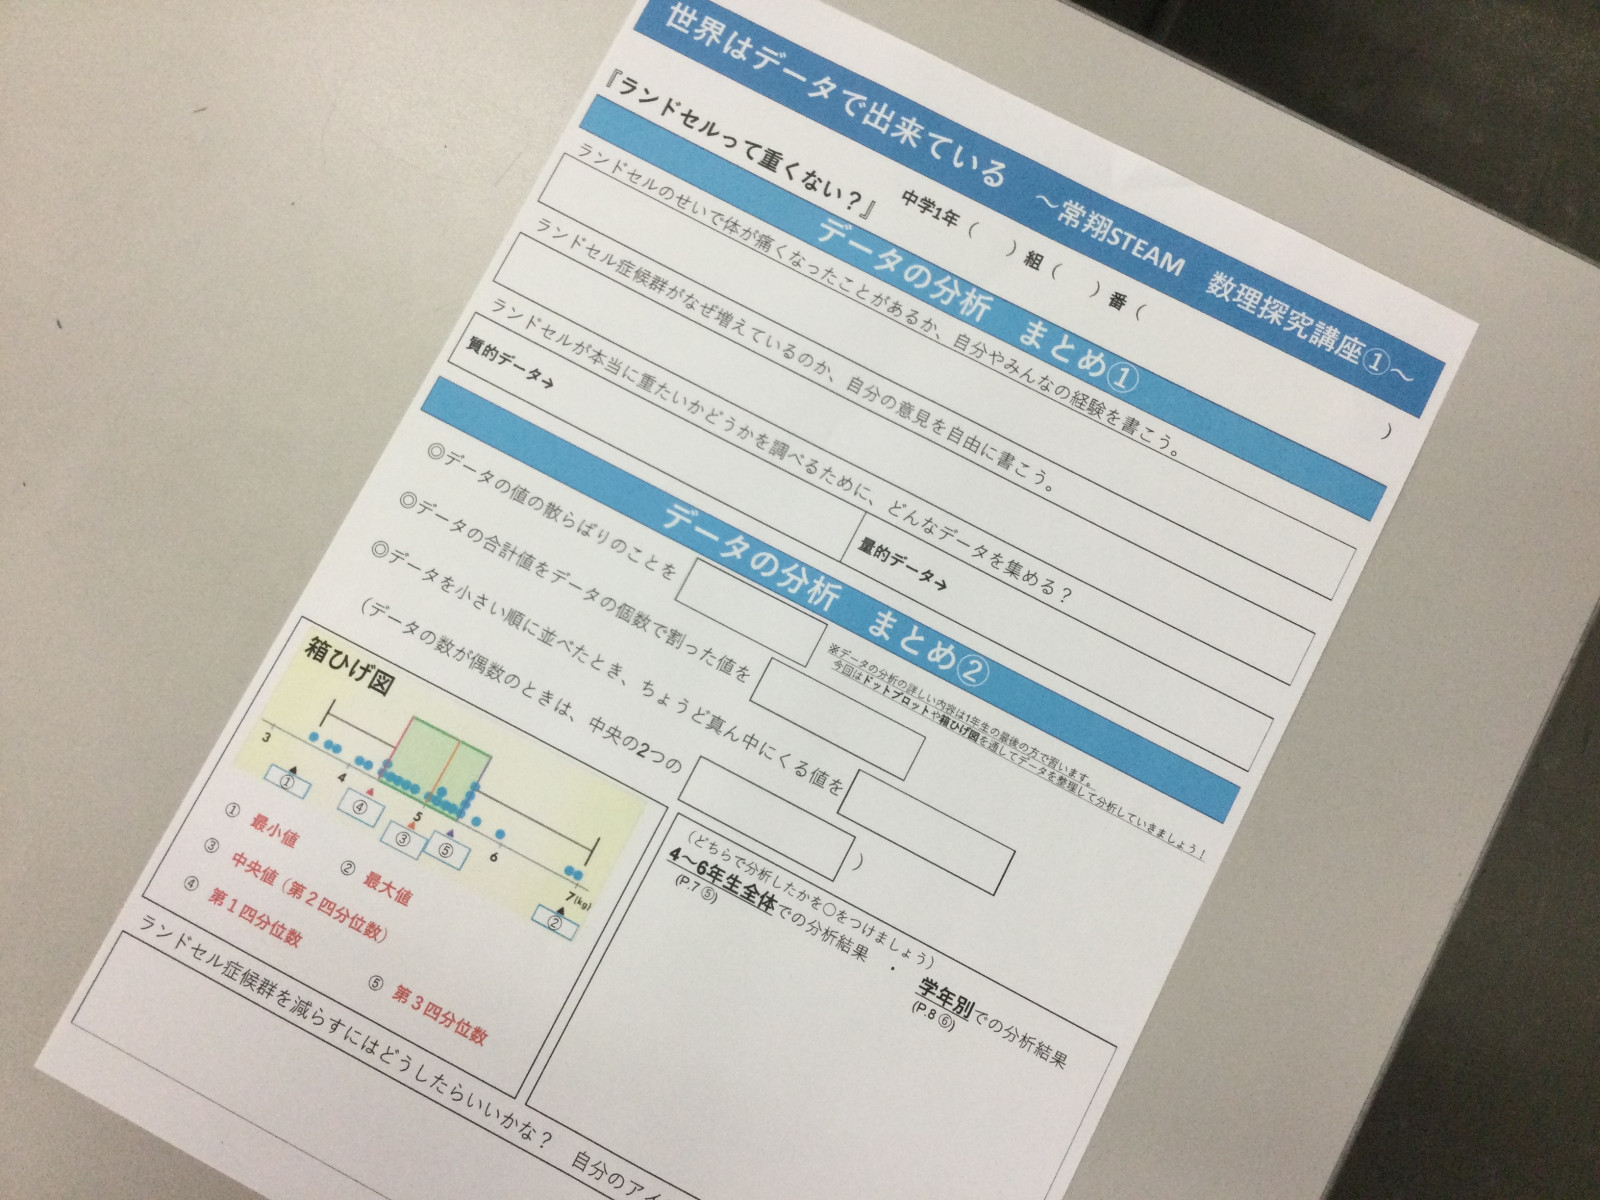 世界はデータで出来ている ～常翔STEAM 数理探究講座①～
『ランドセルって重くない？』 中学1年（ ）組（ ）番（ ）
データの分析 まとめ①
ランドセルのせいで体が痛くなったことがあるか、自分やみんなの経験を書こう。
ランドセル症候群がなぜ増えているのか、自分の意見を自由に書こう。
ランドセルが本当に重たいかどうかを調べるために、どんなデータを集める？
質的データ→
量的データ→
データの分析 まとめ②
◎データの値の散らばりのことを
※データの分析の詳しい内容は1年生の最後の方で習います。
今回はドットプロットや箱ひげ図を通してデータを整理して分析していきましょう！
◎データの合計値をデータの個数で割った値を
◎データを小さい順に並べたとき、ちょうど真ん中にくる値を
（データの数が偶数のときは、中央の2つの ）
箱ひげ図
3 4 5 6 7(kg)
① ④ ③ ⑤ ②
① 最小値
② 最大値
③ 中央値（第２四分位数）
④ 第１四分位数
⑤ 第３四分位数
（どちらで分析したかを○をつけましょう）
4～6年生全体での分析結果 ・ 学年別での分析結果
(P.7 ⑤)
(P.8 ⑥)
ランドセル症候群を減らすにはどうしたらいいかな？ 自分のアイ